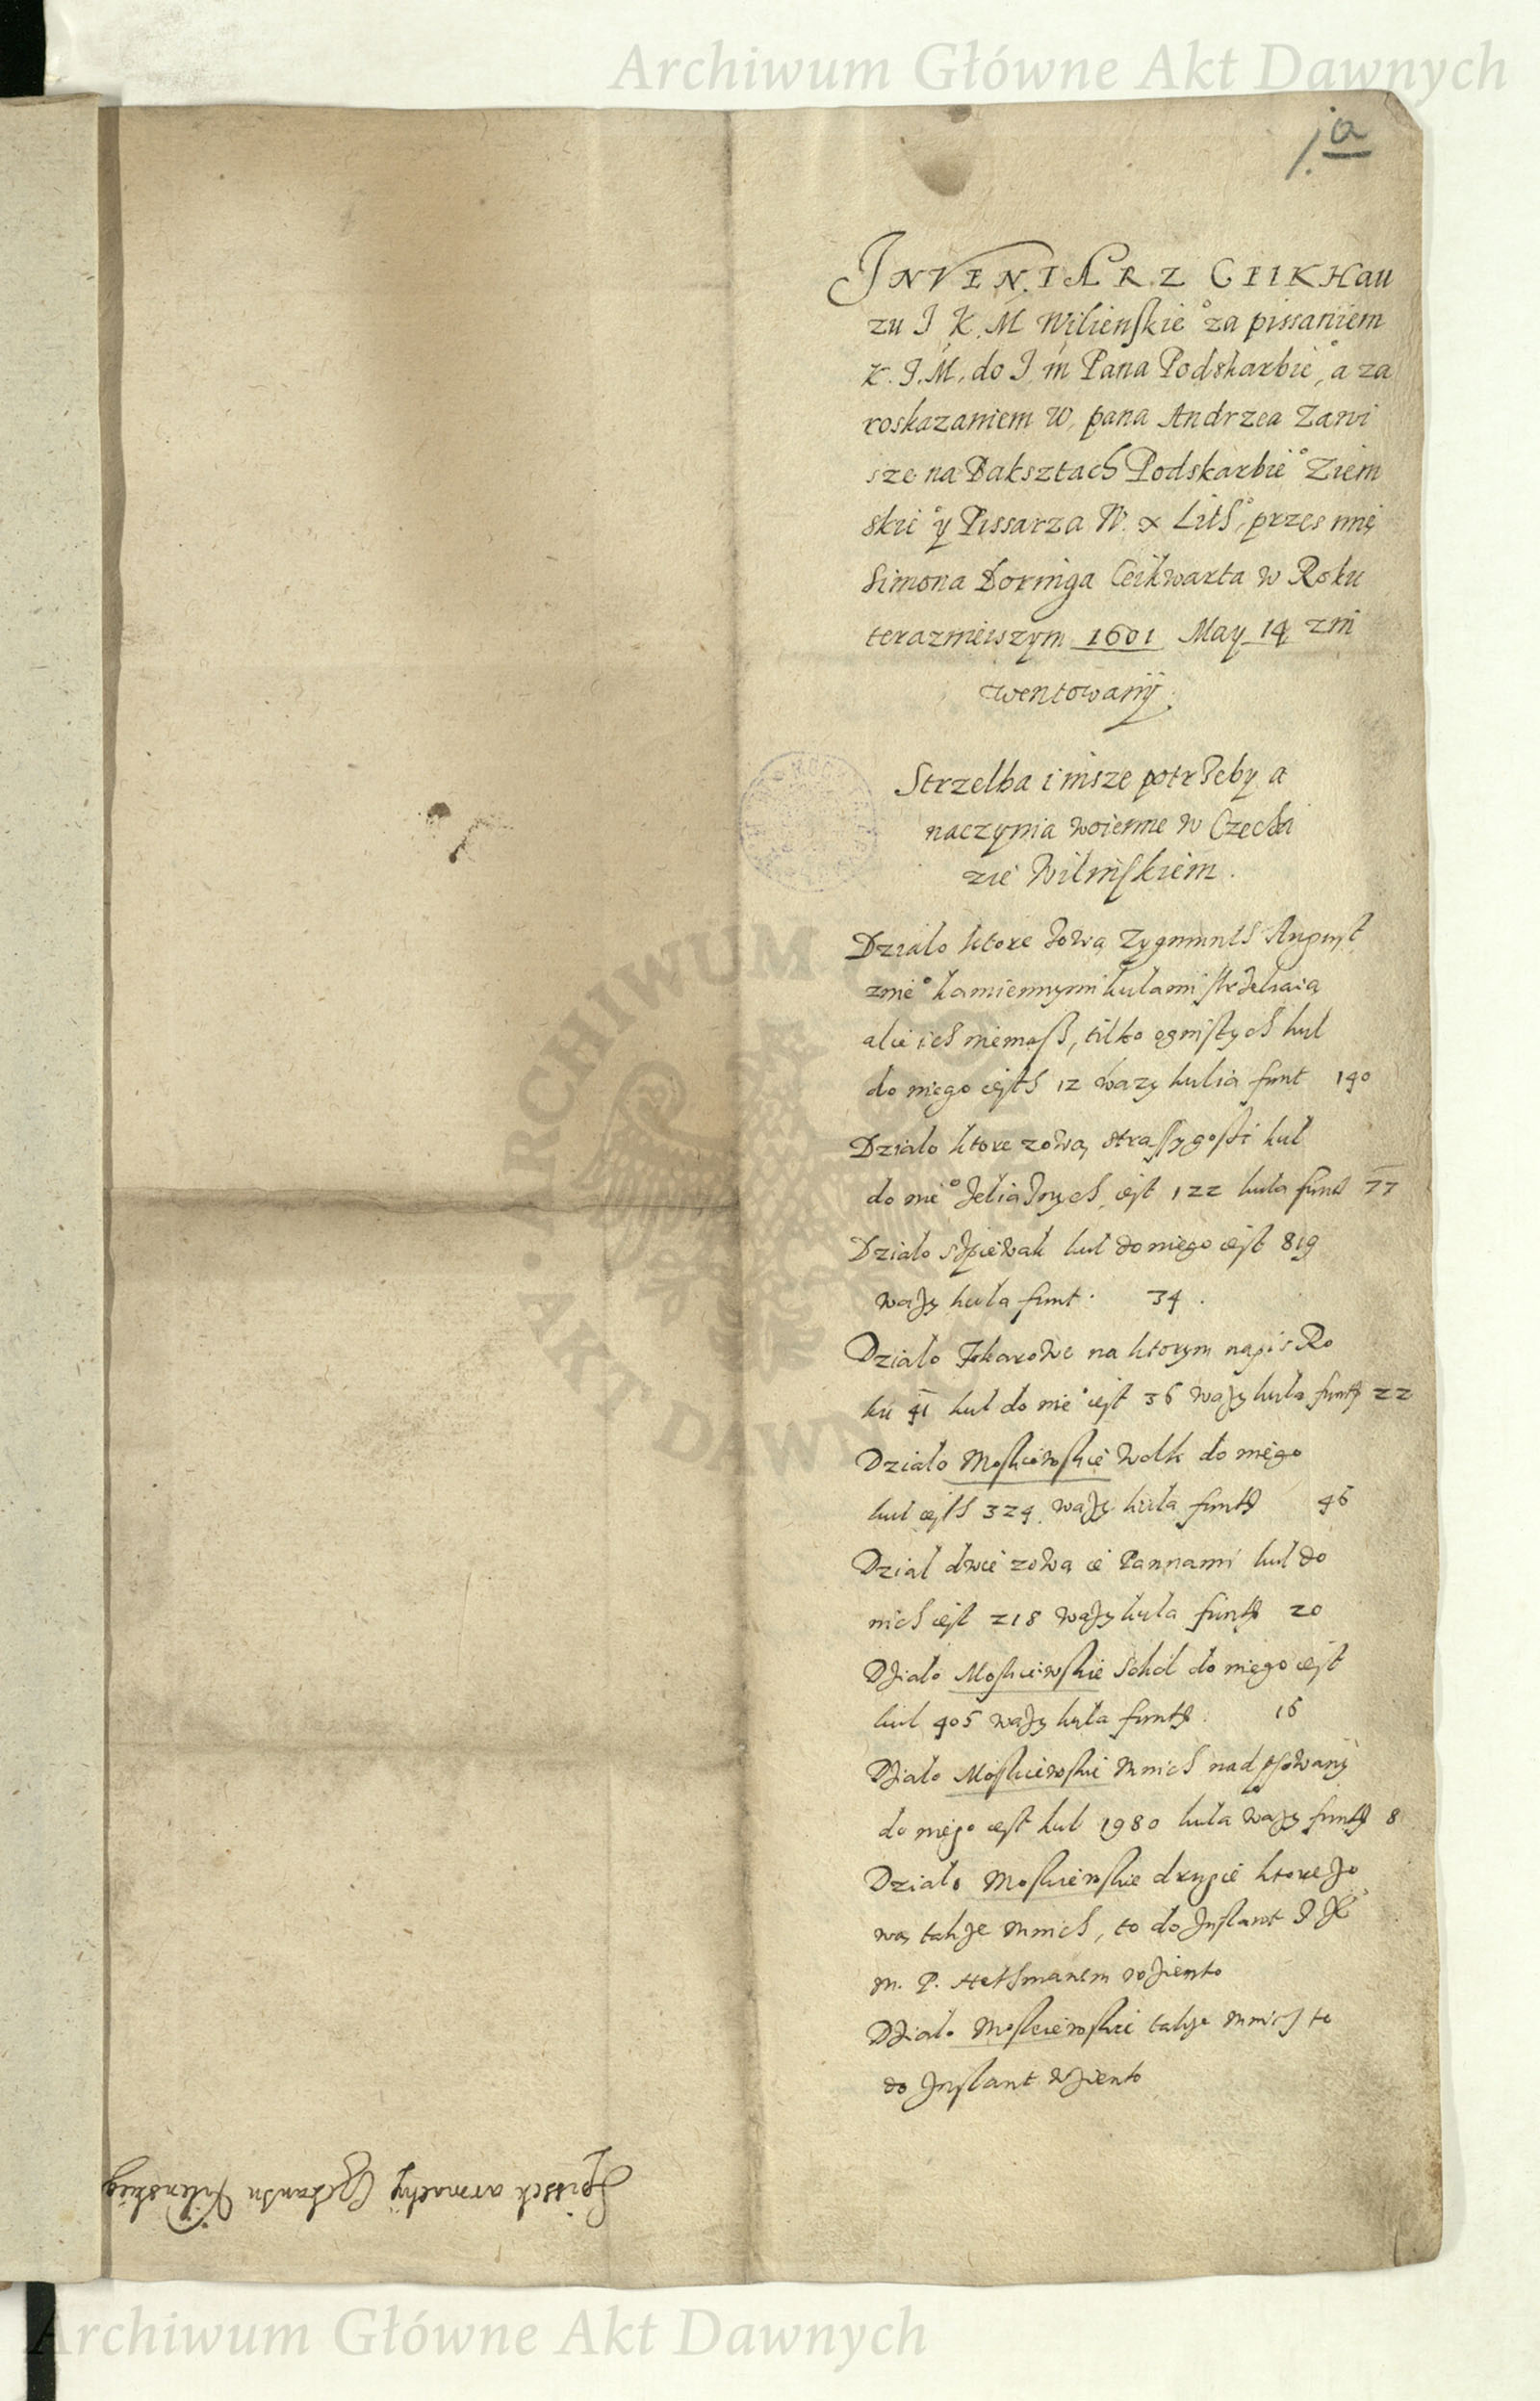 Archiwum Główne Akt Dawnych
1a
INVENTARZ CEIKHau
zu J K. M Wilienskie° za pissaniem
K. J. M. do J m Pana Podskarbie°, a za
roskazaniem W. pana Andrzea Zawi
sze na Baksztach Podskarbie° Ziem
skie° y Pissarza W. x Lith°, przes mię
Simona Doringa Ceikwarta w Roku
terazmieiszym 1601 May 14 zni
wentowany.
Strzelba i insze potrzeby a
naczynia woienne w Czecha
zie Wilinskiem.
Dzialo ktore zową Zygmunth August
znie° kamiennymi kulami strzeliaią
alie ich niemasz, tilko ognistych kul
do niego iesth 12 wazy kulia funt 140
Dzialo ktore zową straszygoski kul
do nie° zeliaznych iest 122 kula funt 77
Dzialo spiewak kul do niego iest 819
wazy kula funt. 34.
Dzialo Tokarowe na ktorym napis Ro
ku 41 kul do nie° iest 36 wazy kula funt 22
Dzialo Moskiewskie Wolk do niego
kul iesth 324 wazy kula funt 46
Dzial dwie zową ie Pannami kul do
nich iest 218 wazy kula funt 20
Dzialo Moskiewskie Sokol do niego iest
kul 405 wazy kula funt. 16
Dzialo Moskiewskie Mnich nadpsowany
do niego iest kul 1980 kula wazy funt 8
Dzialo Moskiewskie drugie ktore zo
wą takze mnich, to do Inflant J K
M. P. Hethmanem wziento
Dzialo Moskiewskie takze mnich to
do Inflant wziento
Spissek armathy Czekauzu Vilenskieg
ARCHIWUM GŁÓWNE AKT DAWNYCH
Archiwum Główne Akt Dawnych